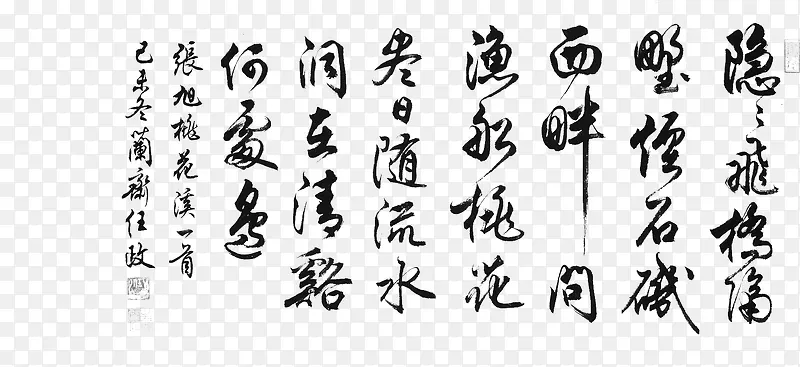 隐〻飛橋隔
野煙石磯
西畔問
漁船桃花
尽日随流水
洞在清谿
何處邊
張旭桃花溪一首
己未冬蘭齋任政